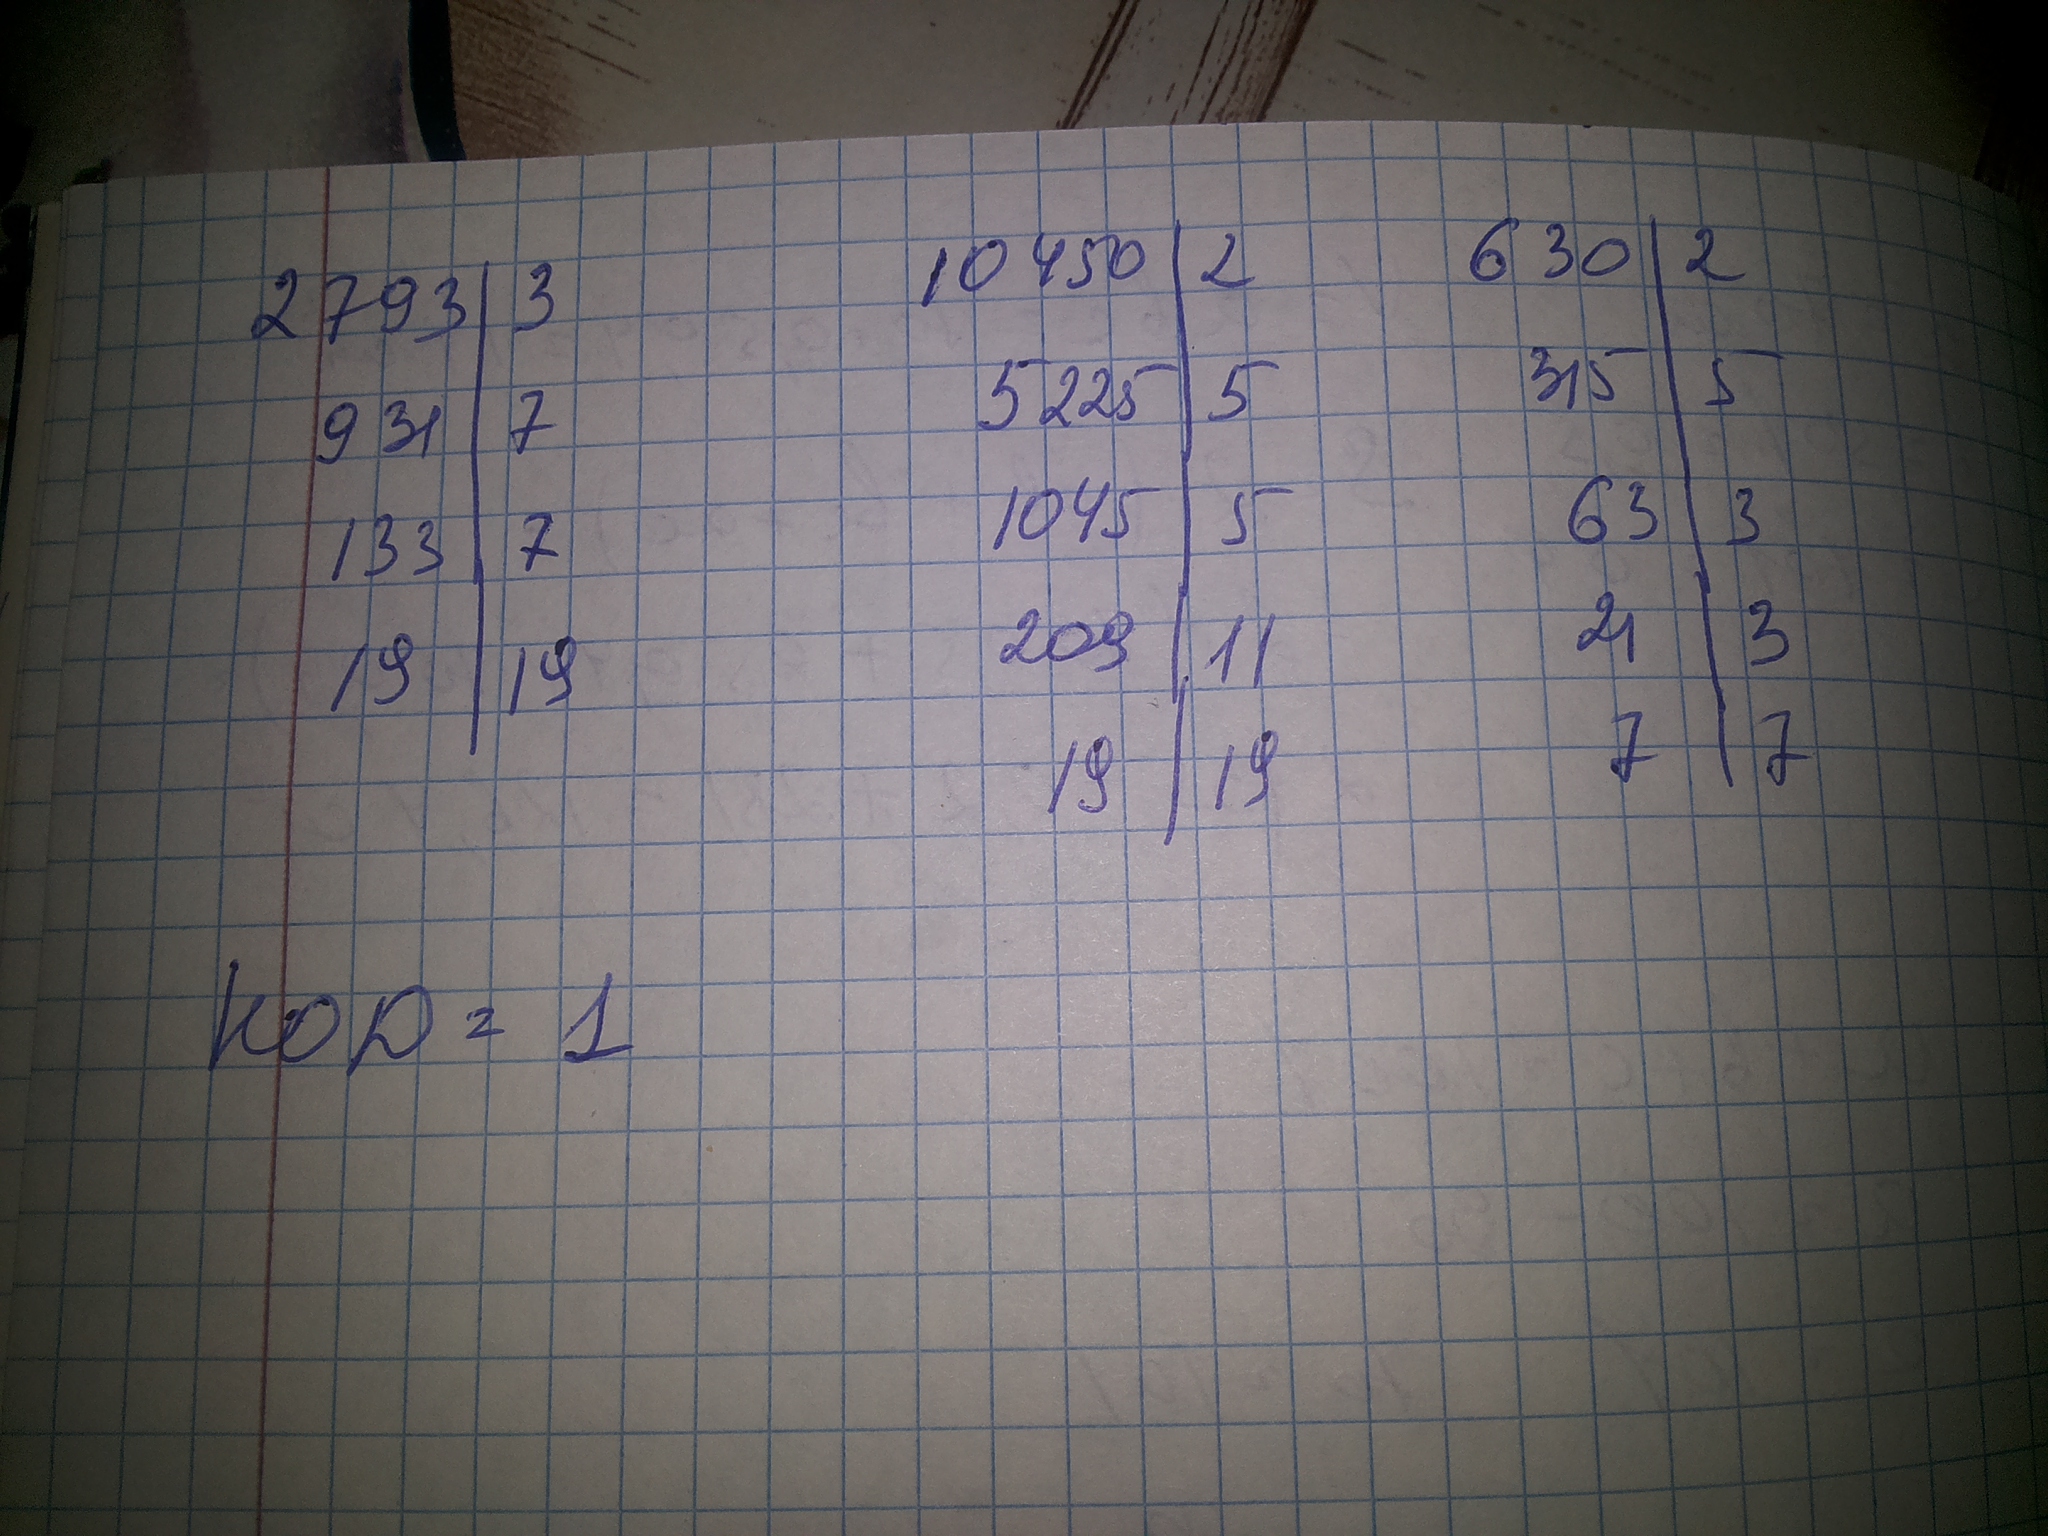 2793 | 3
931 | 7
133 | 7
19 | 19
10450 | 2
5225 | 5
1045 | 5
209 | 11
19 | 19
630 | 2
315 | 5
63 | 3
21 | 3
7 | 7
НОД = 1